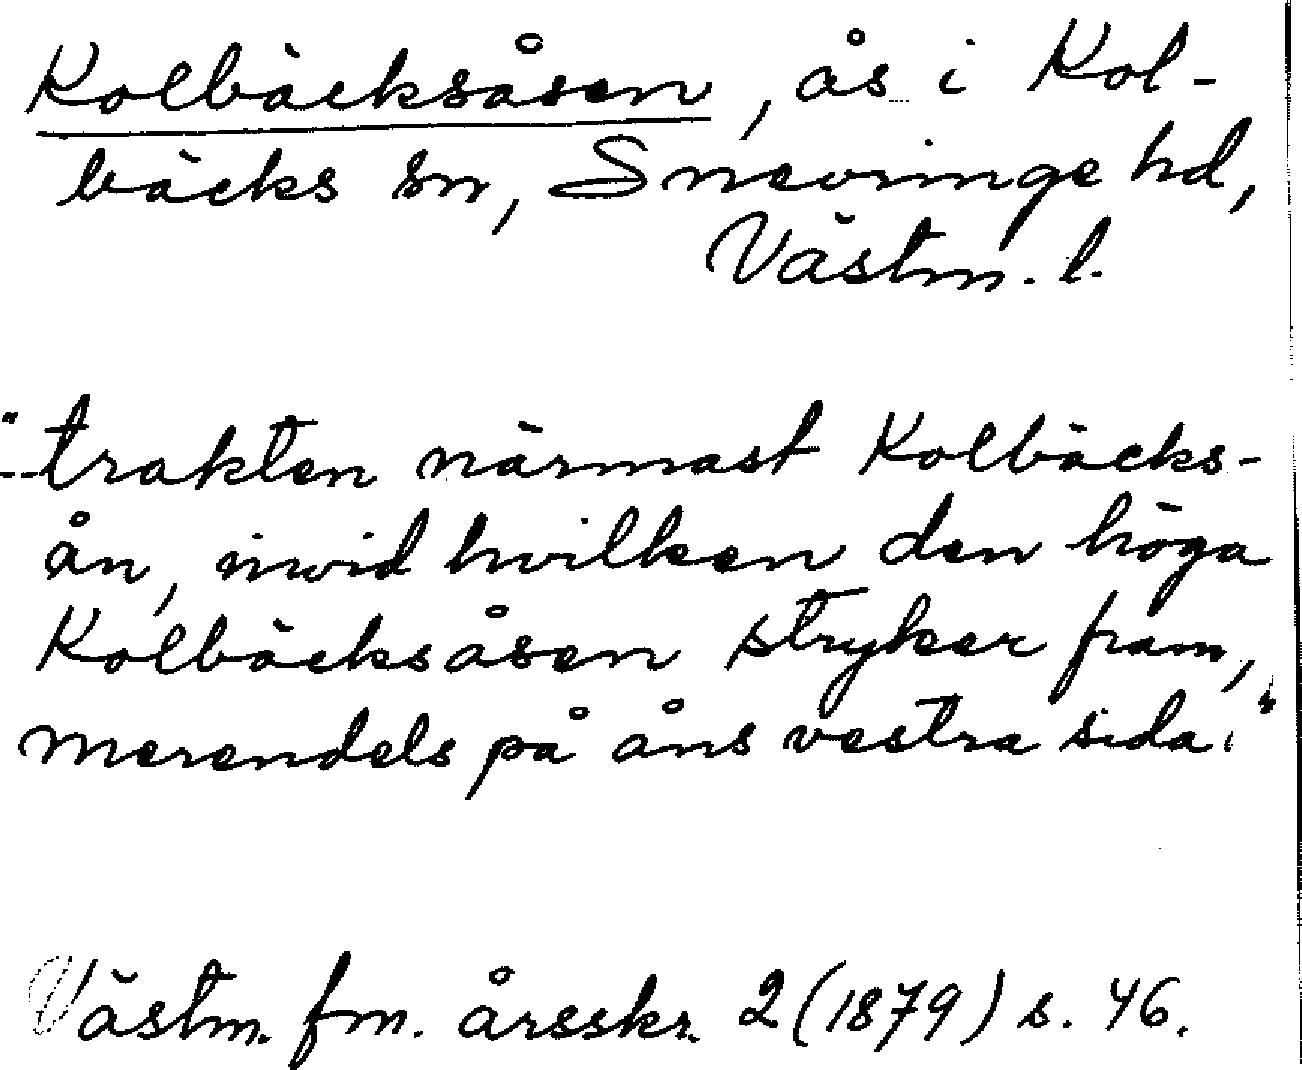 Kolbäcksåsen, ås i Kol-
bäcks sn, Snevringe hd,
Västm. l.
"--trakten närmast Kolbäcks-
ån, invid hvilken den höga
Kolbäcksåsen stryker fram,
merendels på åns vestra sida."
Västm. fm. årsskr. 2 (1879) s. 46.